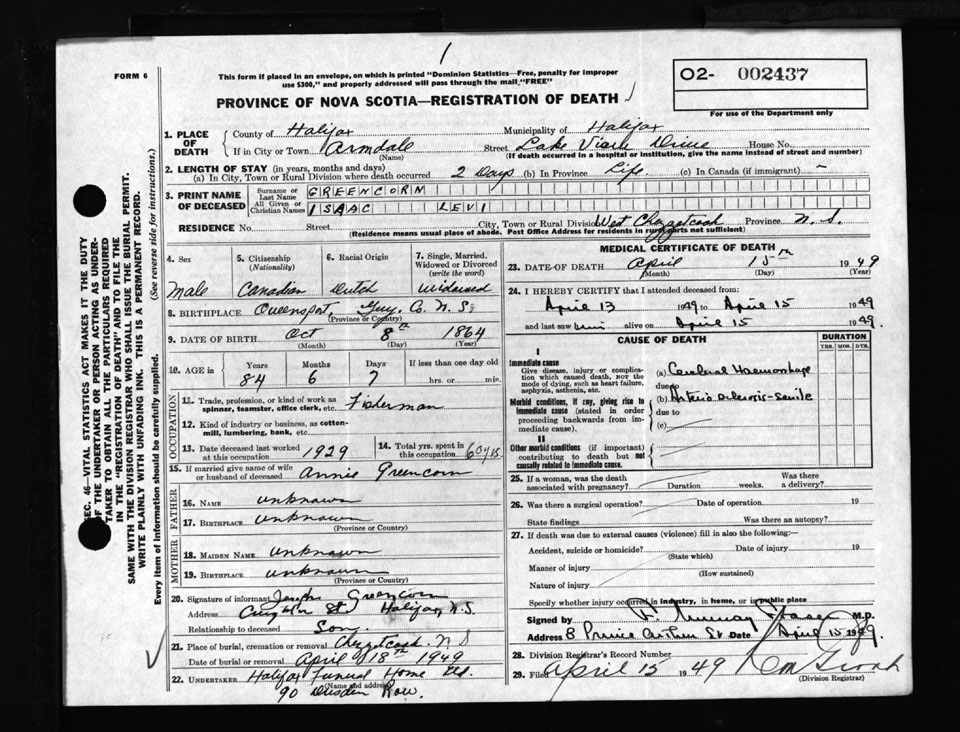 1
FORM 6
This form if placed in an envelope, on which is printed "Dominion Statistics—Free, penalty for improper
use $300," and properly addressed will pass through the mail "FREE"
PROVINCE OF NOVA SCOTIA—REGISTRATION OF DEATH
O2- 002437
For use of the Department only
SEC. 46—VITAL STATISTICS ACT MAKES IT THE DUTY
OF THE UNDERTAKER OR PERSON ACTING AS UNDER-
TAKER TO OBTAIN ALL THE PARTICULARS REQUIRED
IN THE "REGISTRATION OF DEATH" AND TO FILE THE
SAME WITH THE DIVISION REGISTRAR WHO SHALL ISSUE THE BURIAL PERMIT.
WRITE PLAINLY WITH UNFADING INK. THIS IS A PERMANENT RECORD.
Every item of information should be carefully supplied. (See reverse side for instructions.)
1. PLACE OF DEATH County of Halifax Municipality of Halifax
If in City or Town Armdale Street Lake View Drive House No.
(Name) (If death occurred in a hospital or institution, give the name instead of street and number)
2. LENGTH OF STAY (in years, months and days)
(a) In City, Town or Rural Division where death occurred 2 Days (b) In Province Life (c) In Canada (if immigrant) -
3. PRINT NAME OF DECEASED Surname or Last Name GREENCORN
All Given or Christian Names ISAAC LEVI
RESIDENCE No. Street City, Town or Rural Division West Chezzetcook Province N.S.
(Residence means usual place of abode. Post Office Address for residents in rural parts not sufficient)
4. Sex 5. Citizenship (Nationality) 6. Racial Origin 7. Single, Married, Widowed or Divorced (write the word)
Male Canadian Dutch Widowed
8. BIRTHPLACE Queensport, Guy. Co. N.S.
(Province or Country)
9. DATE OF BIRTH Oct 8th 1864
(Month) (Day) (Year)
10. AGE in Years Months Days If less than one day old
84 6 7 hrs. or min.
OCCUPATION
11. Trade, profession or kind of work as spinner, teamster, office clerk, etc. Fisherman
12. Kind of industry or business, as cotton-mill, lumbering, bank, etc.
13. Date deceased last worked at this occupation 1929 14. Total yrs. spent in this occupation 60 yrs
15. If married give name of wife or husband of deceased Annie Greencorn
FATHER
16. NAME unknown
17. BIRTHPLACE unknown
(Province or Country)
MOTHER
18. MAIDEN NAME unknown
19. BIRTHPLACE unknown
(Province or Country)
20. Signature of informant Joseph Greencorn
Address Creighton St Halifax, N.S.
Relationship to deceased Son
21. Place of burial, cremation or removal Chezzetcook. N S
Date of burial or removal April 18th 1949
22. UNDERTAKER Halifax Funeral Home Ltd.
(Name and address)
90 Dresden Row.
MEDICAL CERTIFICATE OF DEATH
23. DATE OF DEATH April 15th 1949
(Month) (Day) (Year)
24. I HEREBY CERTIFY that I attended deceased from:
April 13 1949 to April 15 1949
and last saw him alive on April 15 1949.
CAUSE OF DEATH DURATION
YRS. MOS. DYS.
I
Immediate cause
Give disease, injury or complication which caused death, NOT the mode of dying, such as heart failure, asphyxia, asthenia, etc.
(a) Cerebral Haemorrhage
due to
Morbid conditions, if any, giving rise to immediate cause (stated in order proceeding backwards from immediate cause).
(b) Arterio Sclerosis-Senile
due to
(c)
II
Other morbid conditions (if important) contributing to death but not causally related to immediate cause.
25. If a woman, was the death associated with pregnancy? Duration weeks. Was there a delivery?
26. Was there a surgical operation? Date of operation 19
State findings Was there an autopsy?
27. If death was due to external causes (violence) fill in also the following:—
Accident, suicide or homicide? Date of injury 19
(State which)
Manner of injury
(How sustained)
Nature of injury
Specify whether injury occurred in industry, in home, or in public place
Signed by H Murray Fraser M.D.
Address 8 Prince Arthur St Date April 15 1949.
28. Division Registrar's Record Number
29. Filed April 15 1949
(Division Registrar)